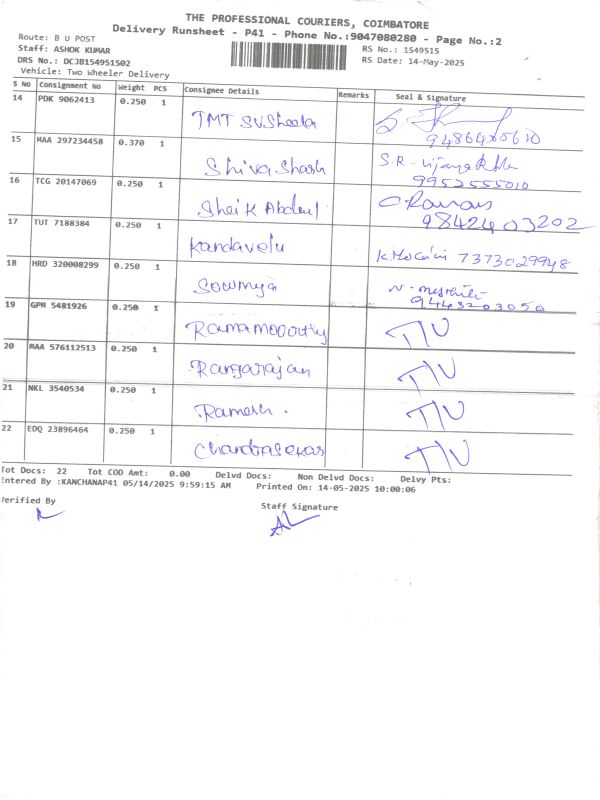 THE PROFESSIONAL COURIERS, COIMBATORE
Delivery Runsheet - P41 - Phone No.:9047080280 - Page No.:2
Route: B U POST
RS No.: 1549515
Staff: ASHOK KUMAR
RS Date: 14-May-2025
DRS No.: DCJB154951502
Vehicle: Two Wheeler Delivery
S No Consignment No Weight PCS Consignee Details Remarks Seal & Signature
14 PDK 9062413 0.250 1 TMT SV.Sheela
15 MAA 297234458 0.370 1 Shiva Shash S.R. 9952555010
16 TCG 20147069 0.250 1 Sheik Abdul 9842403202
17 TUT 7188384 0.250 1 Kandavelu 7373029948
18 HRD 320008299 0.250 1 Sowmya 9443203050
19 GPM 5481926 0.250 1 Ramamoorthy
20 MAA 576112513 0.250 1 Rangarajan
21 NKL 3540534 0.250 1 Ramesh.
22 EDQ 23896464 0.250 1 Chandrasekar
Tot Docs: 22 Tot COD Amt: 0.00 Delvd Docs: Non Delvd Docs: Delvy Pts:
Entered By :KANCHANAP41 05/14/2025 9:59:15 AM Printed On: 14-05-2025 10:00:06
Verified By
Staff Signature